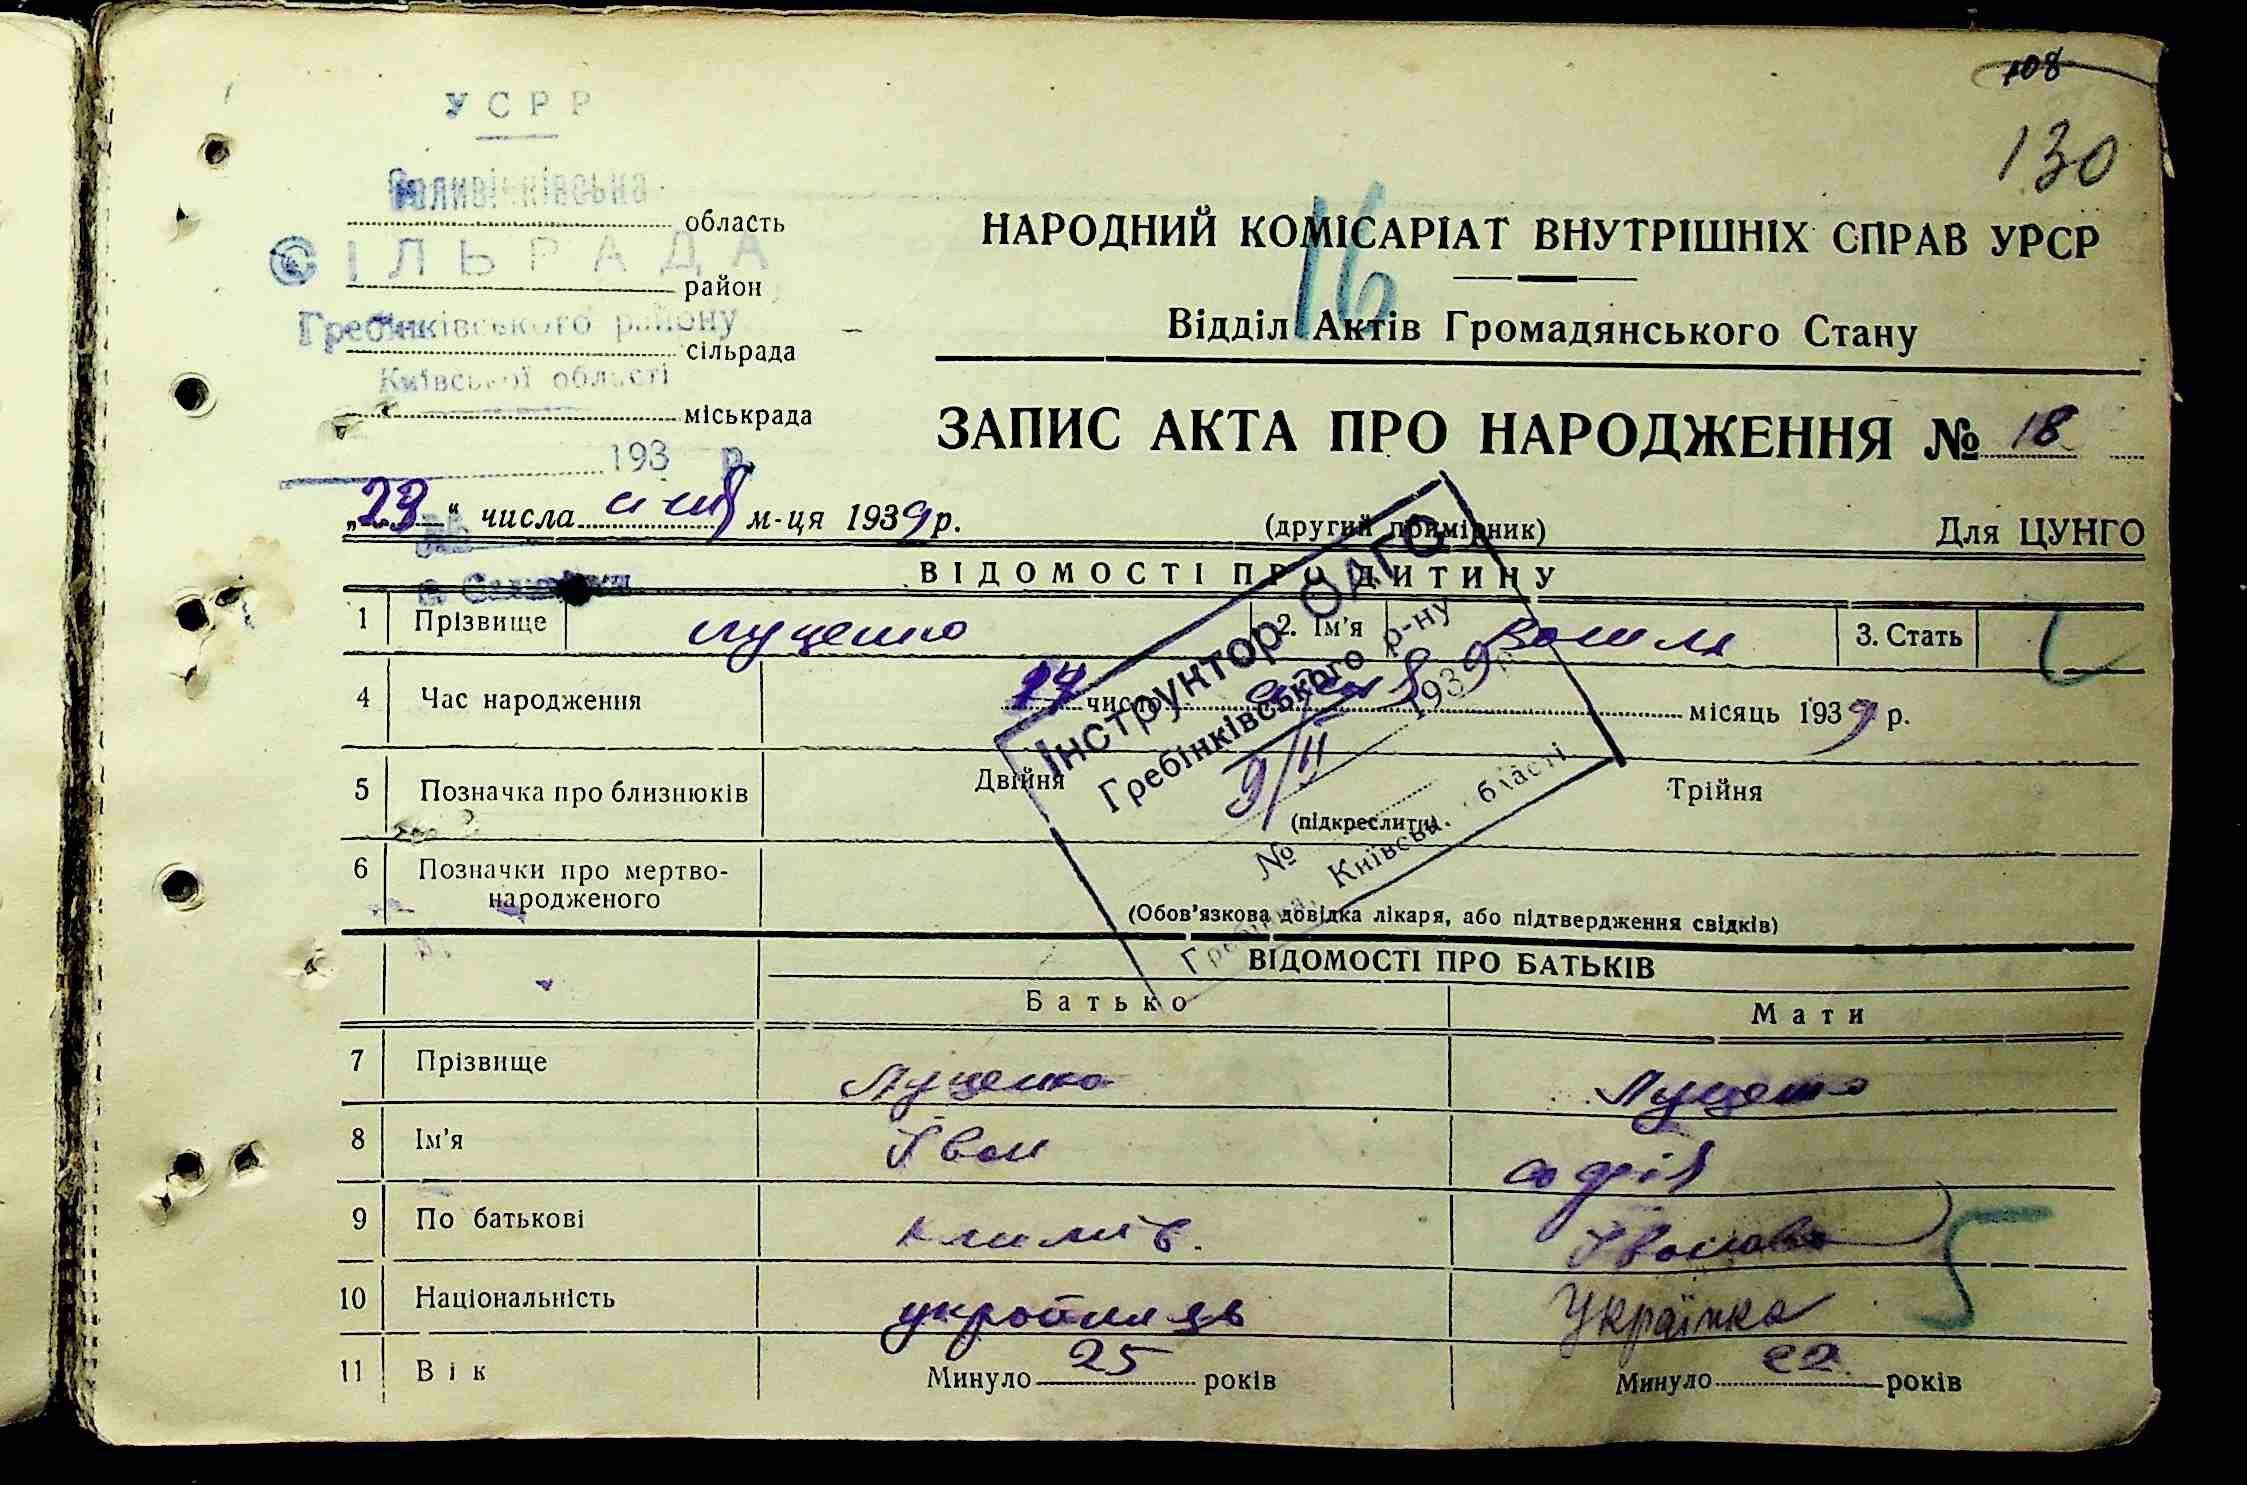 108
130
УСРР
Саливінківська
область
СІЛЬРАДА
район
Гребінківського району
сільрада
Київської області
міськрада
193 р.
16
НАРОДНИЙ КОМІСАРІАТ ВНУТРІШНІХ СПРАВ УРСР
Відділ Актів Громадянського Стану
ЗАПИС АКТА ПРО НАРОДЖЕННЯ № 18
„23“ числа січня м-ця 1939 р.
(другий примірник)
Для ЦУНГО
ВІДОМОСТІ ПРО ДИТИНУ
1 Прізвище Луценко 2. Ім'я 3. Стать
4 Час народження числа січня місяць 1939 р.
5 Позначка про близнюків Двійня Трійня
(підкреслити)
6 Позначки про мертво-
народженого
(Обов'язкова довідка лікаря, або підтвердження свідків)
Інструктор ОАГС
Гребінківського р-ну
9/II 1939 р.
№
Гребінка, Київськ. області
ВІДОМОСТІ ПРО БАТЬКІВ
Батько Мати
7 Прізвище Луценко Луценко
8 Ім'я Іван Софія
9 По батькові Климів. Іванова
10 Національність українець Українка
5
11 Вік Минуло 25 років Минуло 22 років